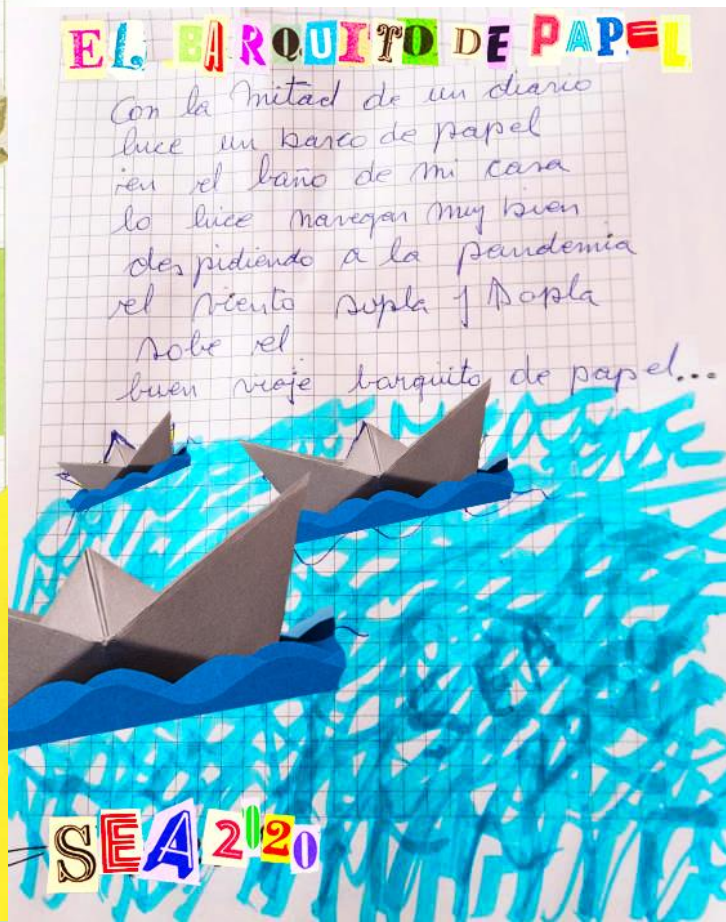 EL BARQUITO DE PAPEL
Con la mitad de un diario
hice un barco de papel
en el baño de mi casa
lo hice navegar muy bien
despidiendo a la pandemia
el viento sopla y sopla
sobe el
buen vieje barquito de papel...
SEA
SEA 2020